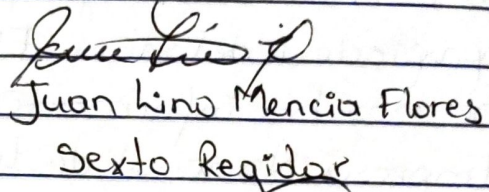 Juan Lino Mencia Flores
Sexto Regidor